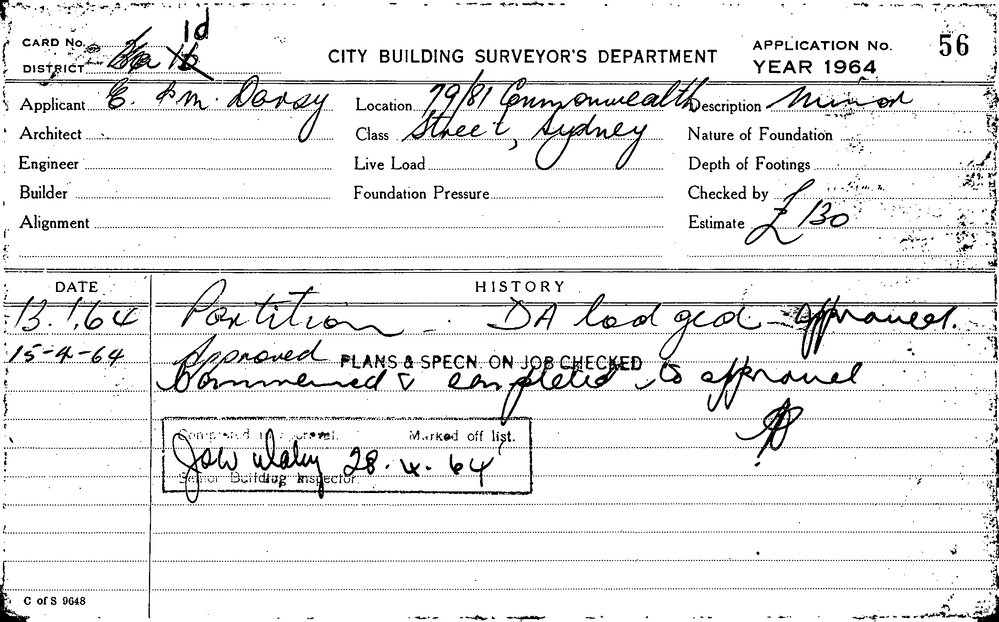 1d
CARD No.
DISTRICT
CITY BUILDING SURVEYOR'S DEPARTMENT
APPLICATION No. 56
YEAR 1964
Applicant E. & M. Darsy Location 79/81 Commonwealth Description Minor
Architect Class Street, Sydney Nature of Foundation
Engineer Live Load Depth of Footings
Builder Foundation Pressure Checked by
Alignment Estimate £130
DATE HISTORY
13.1.64 Partition - DA lodged - approved.
15-4-64 Approved PLANS & SPECN. ON JOB CHECKED
Commenced & completed to approval
Completed to approval. Marked off list.
28.4.64
Senior Building Inspector
C of S 9648